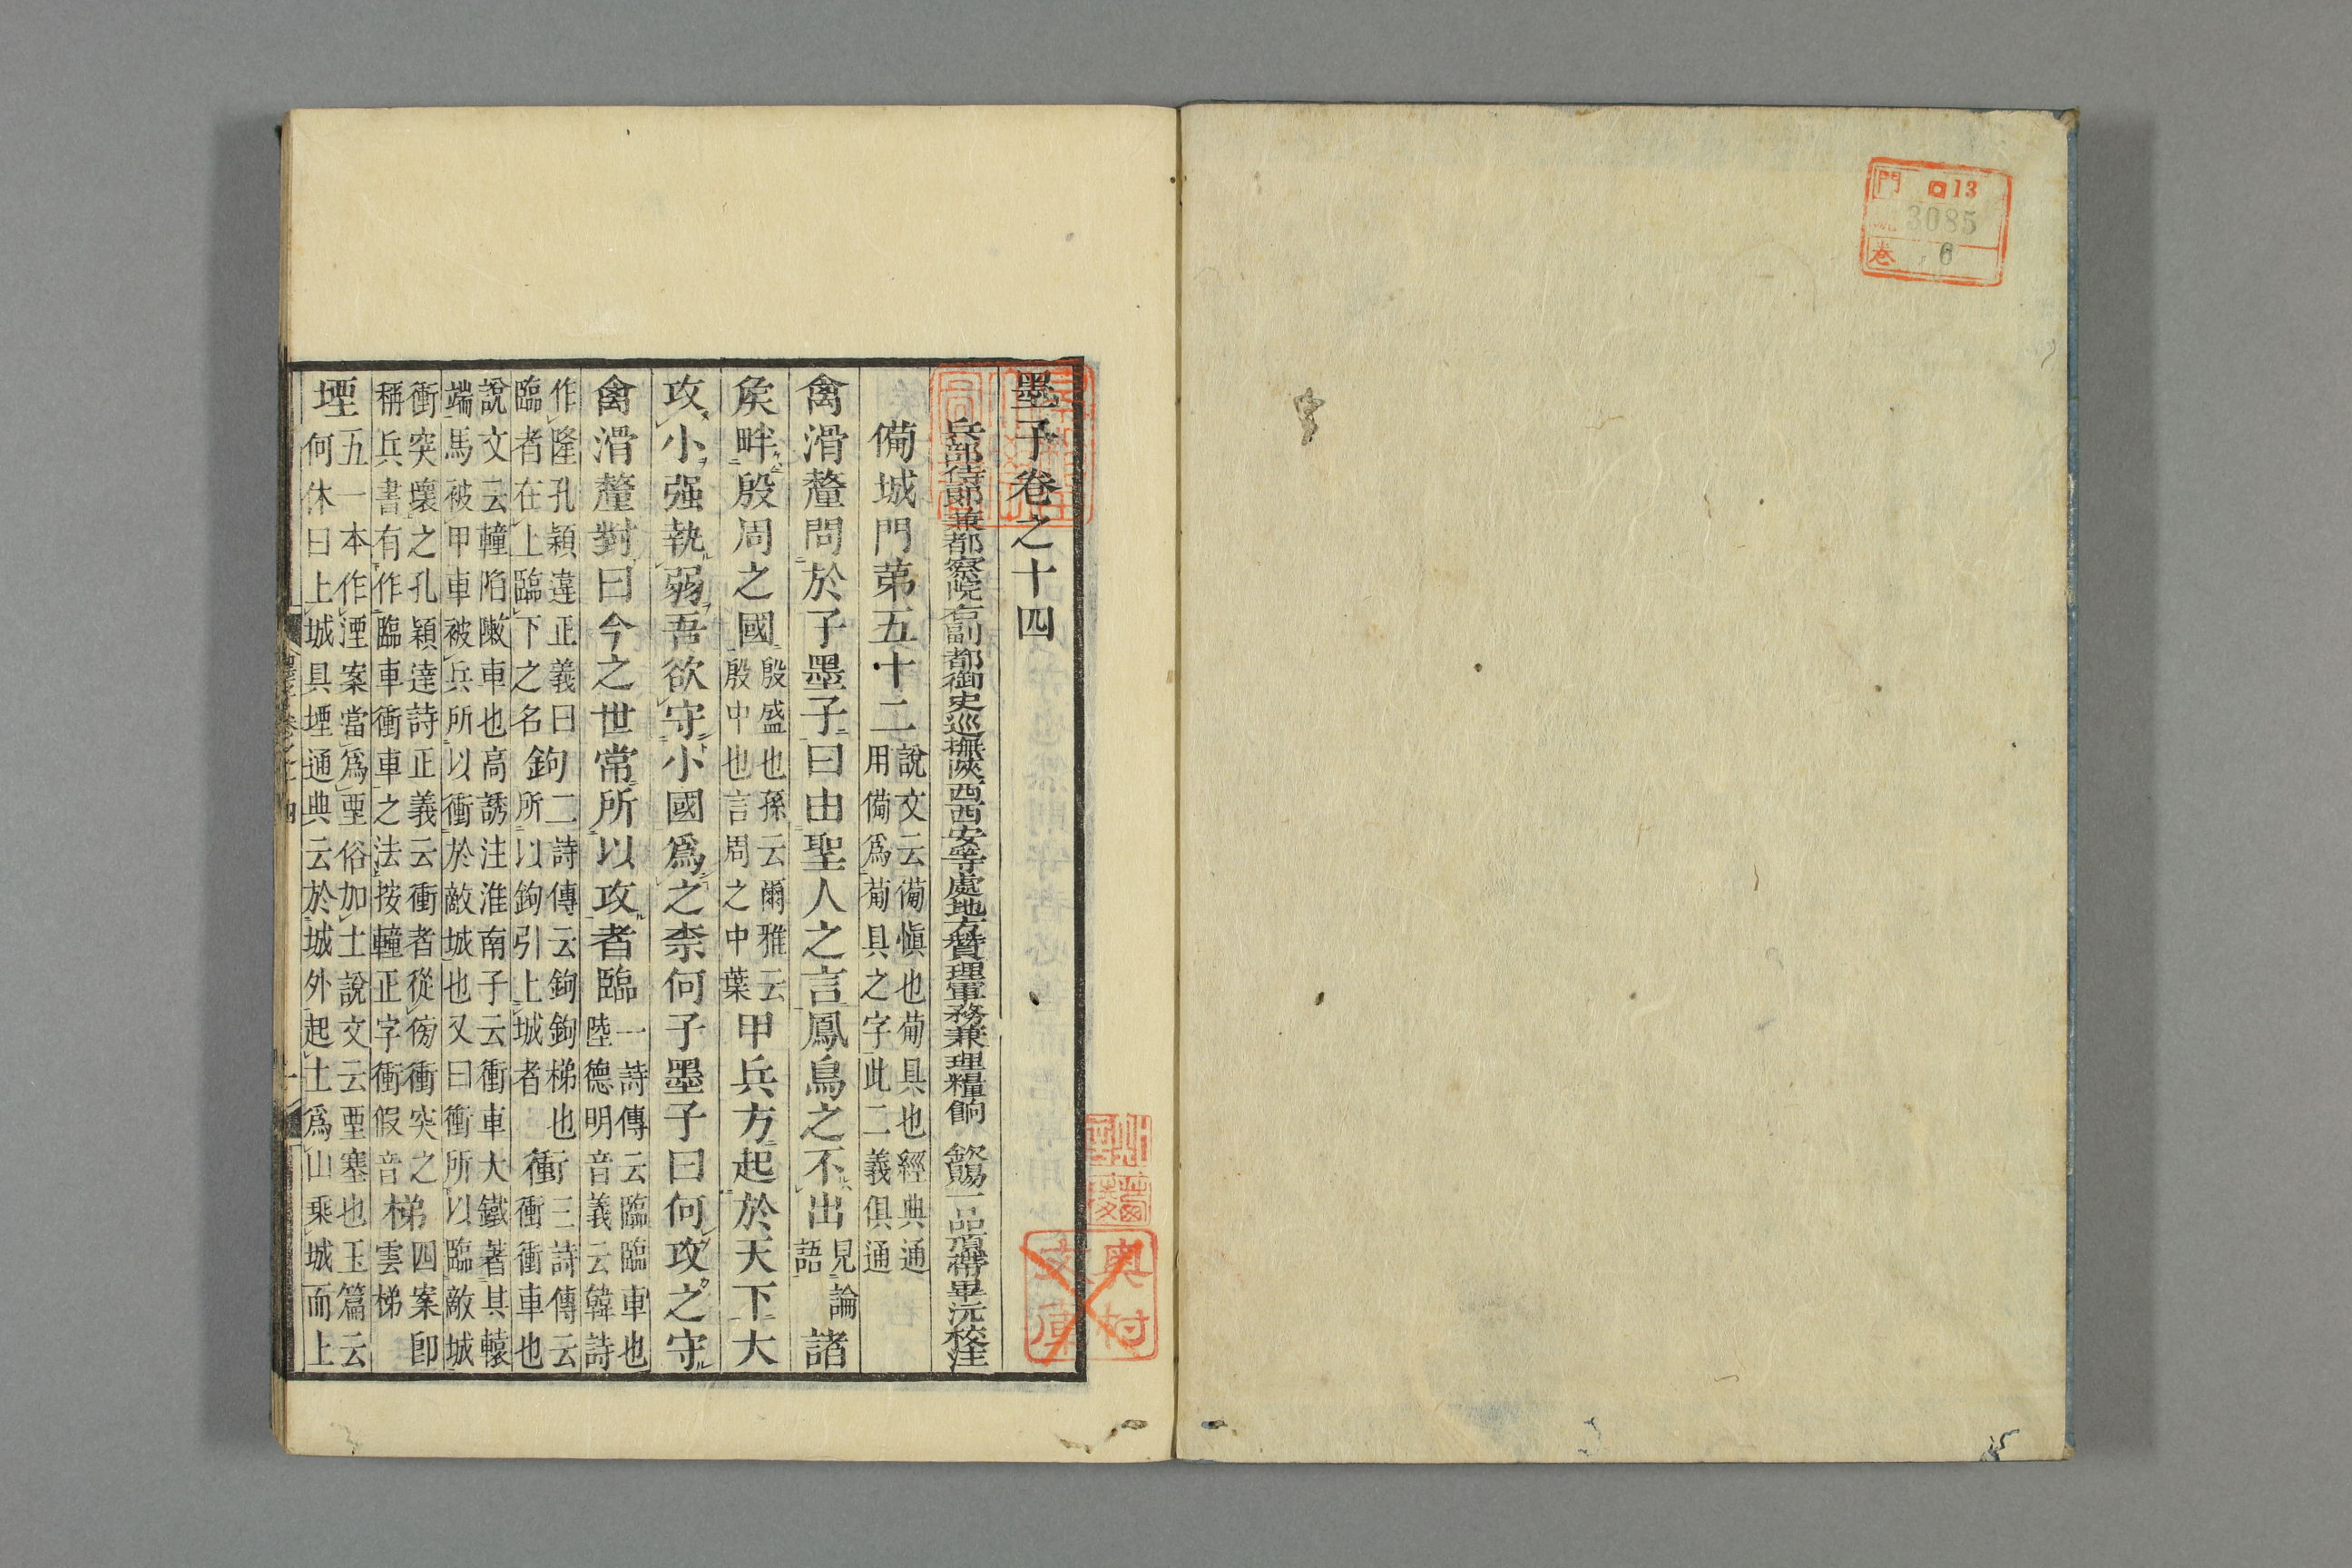 門 ロ13
號 3085
卷 6
墨子卷之十四
兵部侍郞兼都察院右副都御史巡撫陝西西安等處地方贊理軍務兼理糧餉 欽賜一品頂帶畢沅校注
備城門第五十二 說文云備愼也葡具也經典通用備爲葡具之字此二義俱通
禽滑釐問於子墨子曰由聖人之言鳳鳥之不出 見論語 諸
矦畔殷周之國 殷盛也孫云爾雅云殷中也言周之中葉 甲兵方起於天下大
攻小强執弱吾欲守小國爲之柰何子墨子曰何攻之守
禽滑釐對曰今之世常所以攻者臨 一詩傳云臨臨車也陸德明音義云韓詩
作隆孔穎達正義曰臨者在上臨下之名 鉤 二詩傳云鉤鉤梯也所以鉤引上城者 衝 三詩傳云衝衝車也
說文云轒陷敶車也高誘注淮南子云衝車大鐵著其轅端馬被甲車被兵所以衝於敵城也又曰衝所以臨敵城
衝突壞之孔穎達詩正義云衝者從傍衝突之稱兵書有作臨車衝車之法按轒正字衝假音 梯 四案卽雲梯
堙 五一本作湮案當爲垔俗加土說文云垔塞也玉篇云何休曰上城具堙通典云於城外起土爲山乘城而上
墨子卷之十四 一
奧村文庫